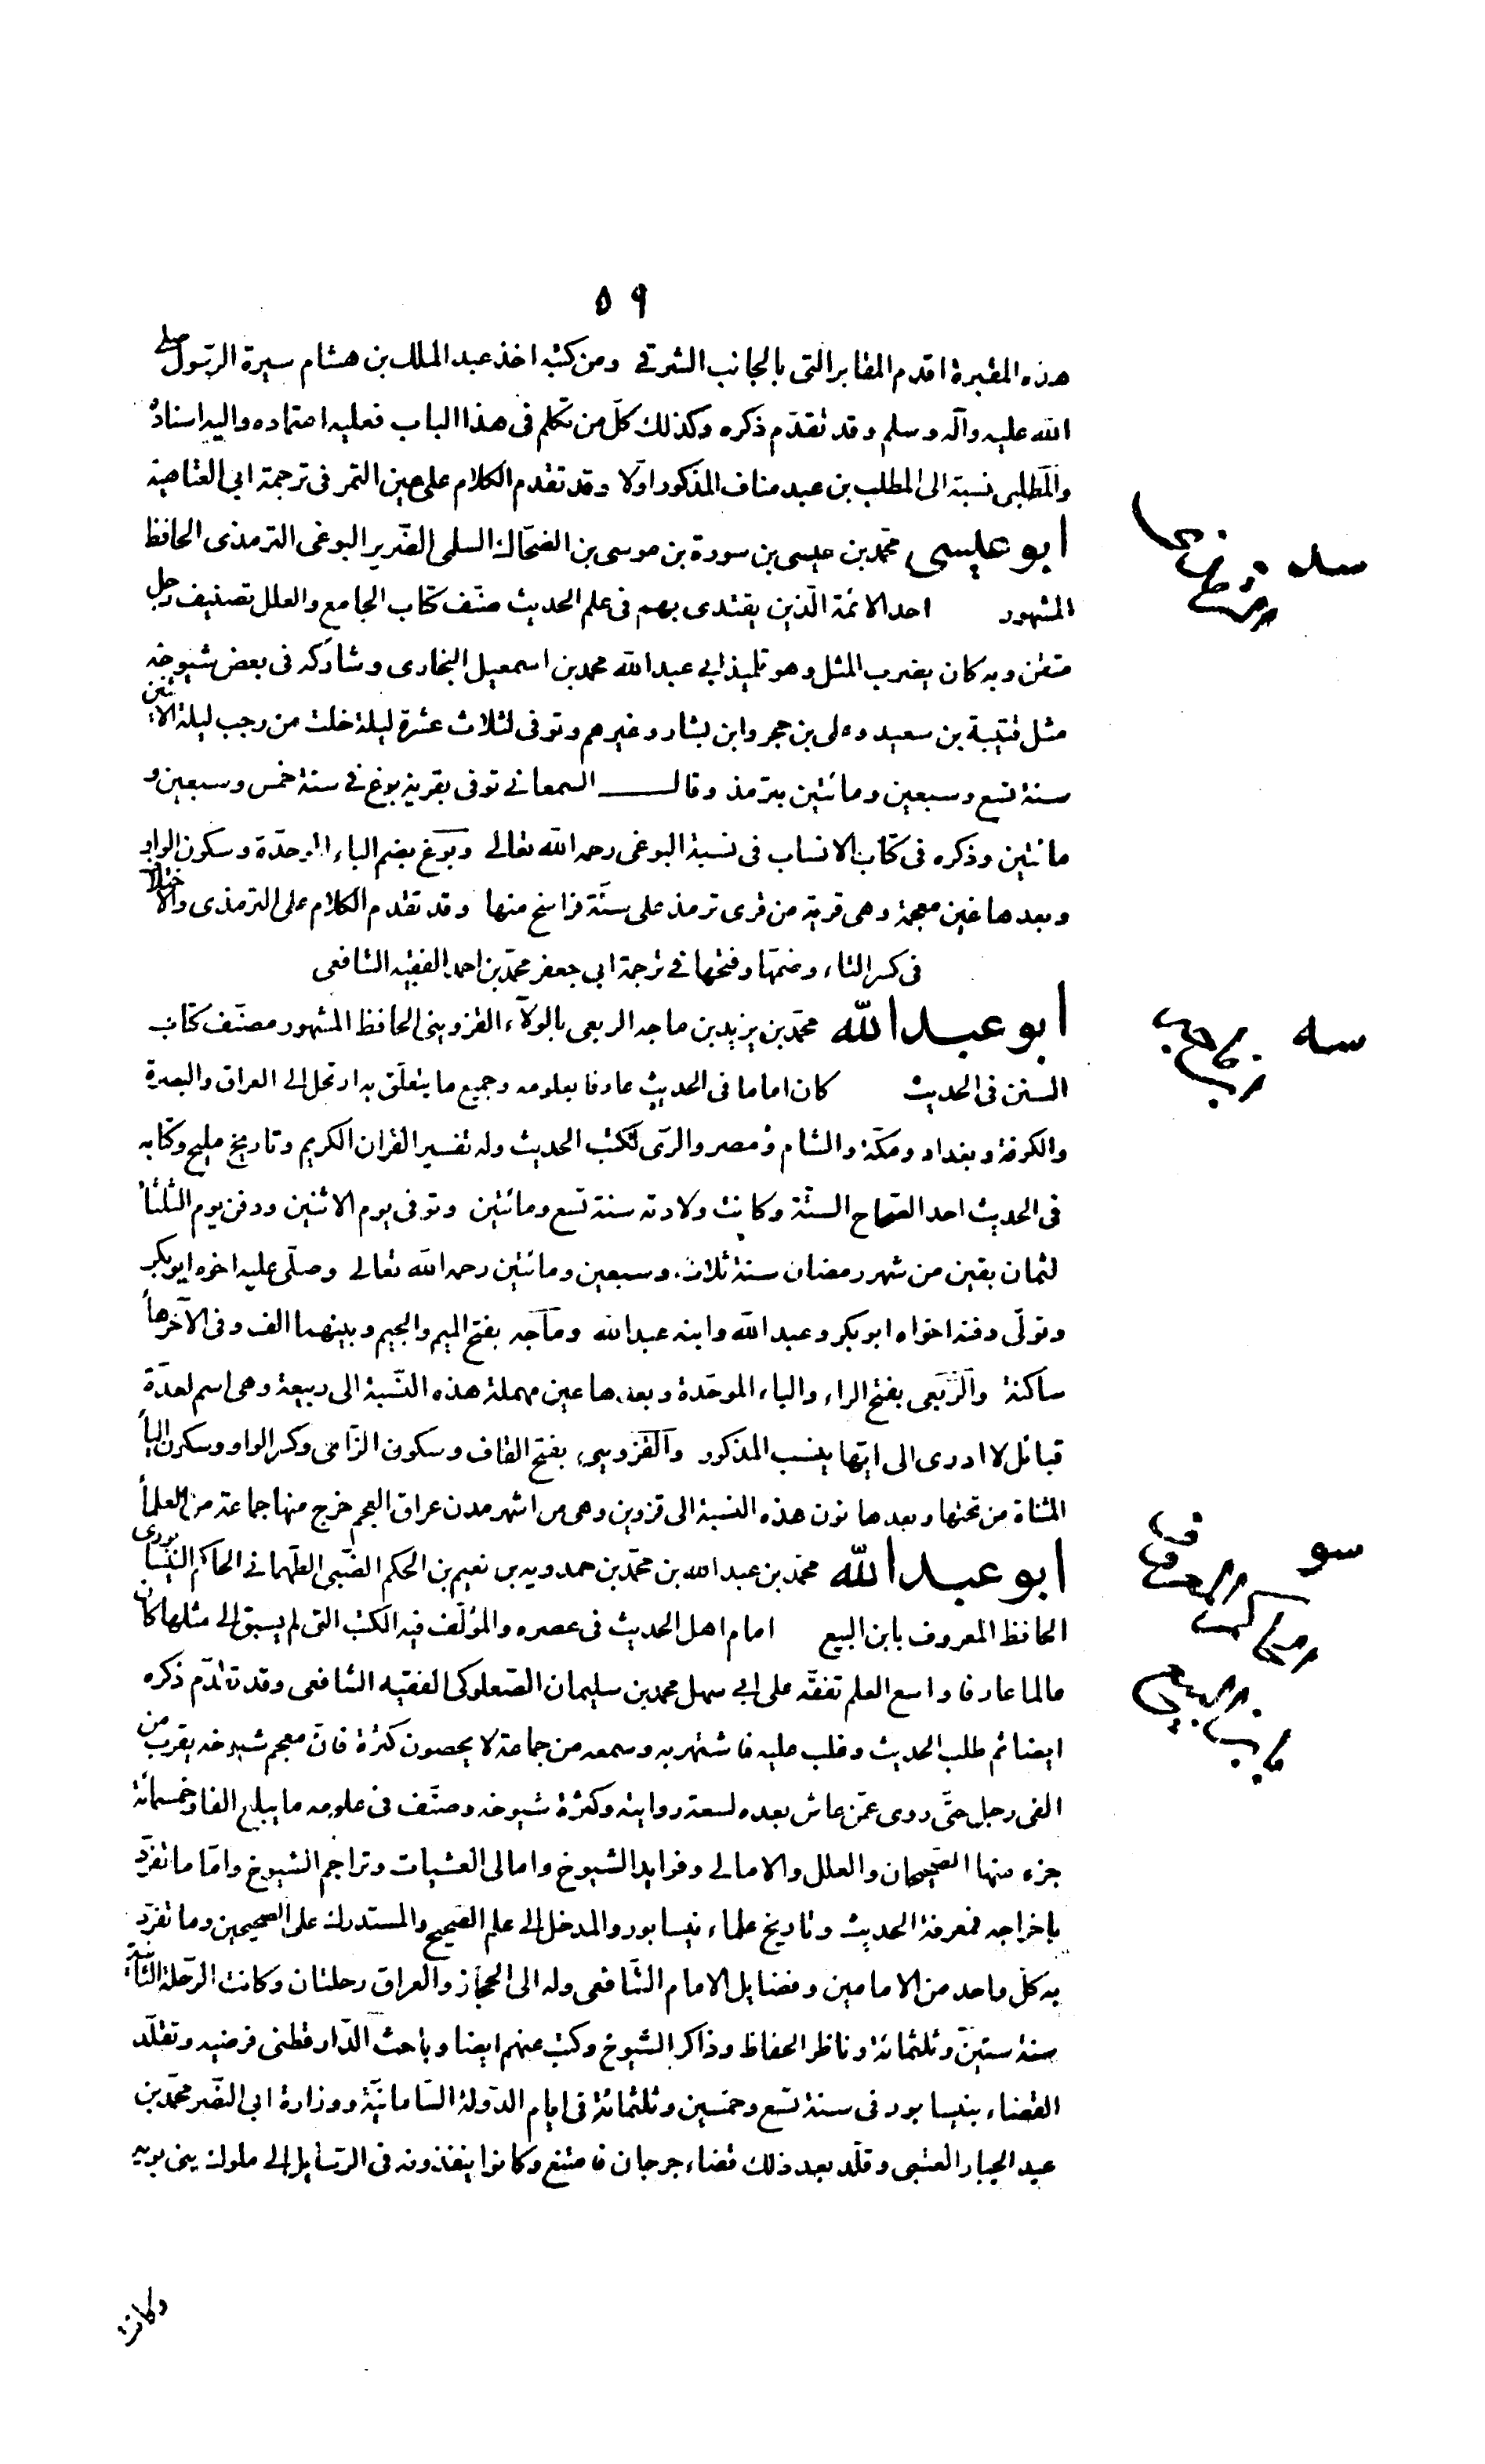 ٥٩
هذه المقبرة اقدم المقابر التى بالجانب الشرقى ومن كتبه اخذ عبد الملك بن هشام سيرة الرسول صلى
الله عليه وآله وسلم وقد تقدّم ذكره وكذلك كلّ من تكلم فى هذا الباب فعليه اعتماده واليه اسناده
والمطلبى نسبة الى المطلب بن عبد مناف المذكور اوّلا وقد تقدم الكلام على عين التمر فى ترجمة ابى العتاهية
أبو عليسى محمّد بن عيسى بن سورة بن موسى بن الضحّاك السلمى الضّرير البوغى الترمذى الحافظ
المشهور احد الائمة الّذين يقتدى بهم فى علم الحديث صنّف كتاب الجامع والعلل تصنيف رجل
متقن وبه كان يضرب المثل وهو تلميذ ابى عبد الله محمد بن اسمعيل البخارى وشاركه فى بعض شيوخه
مثل قتيبة بن سعيد وعلى بن حجر وابن بشار وغيرهم وتوفى لثلاث عشرة ليلة خلت من رجب ليلة الاثنين
سنة تسع وسبعين ومائتين بترمذ وقال السمعانى توفى بقرية بوغ فى سنة خمس وسبعين و
مائتين وذكره فى كتاب الانساب فى نسبة البوغى رحمه الله تعالى وبوغ بضم الباء الموحّدة وسكون الواو
وبعدها غين معجمة وهى قرية من قرى ترمذ على ستّة فراسخ منها وقد تقدم الكلام على الترمذى والاختلاف
فى كسر التاء وضمّها وفتحها فى ترجمة ابى جعفر محمّد بن احمد الفقيه الشافعى
أبو عبد الله محمّد بن يزيد بن ماجه الربعى بالولآء القزوينى الحافظ المشهور مصنّف كتاب
السنن فى الحديث كان اماما فى الحديث عارفا بعلومه وجميع ما يتعلّق به ارتحل الى العراق والبصرة
والكوفة وبغداد ومكّة والشام ومصر والرّى لكتب الحديث وله تفسير القران الكريم وتاريخ مليح وكتابه
فى الحديث احد الصّحاح الستّة وكانت ولادته سنة تسع ومائتين وتوفى يوم الاثنين ودفن يوم الثلثا
لثمان بقين من شهر رمضان سنة ثلاث وسبعين ومائتين رحمه الله تعالى وصلّى عليه اخوه ابوبكر
وتولّى دفنه اخواه ابو بكر وعبد الله وابنه عبد الله وماجه بفتح الميم والجيم وبينهما الف وفى الآخر هاء
ساكنة والرّبعى بفتح الراء والباء الموحّدة وبعدها عين مهملة هذه النّسبة الى ربيعة وهى اسم لعدّة
قبائل لا ادرى الى ايّها ينسب المذكور والقزوينى بفتح القاف وسكون الزّاى وكسر الواو وسكون الياء
المثناة من تحتها وبعدها نون هذه النسبة الى قزوين وهى من اشهر مدن عراق العجم خرج منها جماعة من العلماء
أبو عبد الله محمّد بن عبد الله بن محمّد بن حمدويه بن نعيم بن الحكم الضّبى الطّهمانى الحاكم النيسابورى
الحافظ المعروف بابن البيع امام اهل الحديث فى عصره والمؤلّف فيه الكتب التى لم يسبق الى مثلها كان
عالما عارفا واسع العلم تفقّه على ابى سهل محمد بن سليمان الصّعلوكى الفقيه الشافعى وقد تقدّم ذكره
ايضا ثم طلب الحديث وغلب عليه فاشتهر به وسمعه من جماعة لا يحصون كثرة فانّ معجم شيوخه يقرب من
الفى رجل حتّى روى عمّن عاش بعده لسعة روايته وكثرة شيوخه وصنّف فى علومه ما يبلغ الفا وخمسمائة
جزء منها الصّحيحان والعلل والامالى وفوايد الشيوخ وامالى العشيات وتراجم الشيوخ وامّا ما تفرّد
باخراجه فمعرفة الحديث وتاريخ علماء نيسابور والمدخل الى علم الصّحيح والمستدرك على الصحيحين وما تفرّد
به كلّ واحد من الامامين وفضايل الامام الشّافعى وله الى الحجاز والعراق رحلتان وكانت الرّحلة الثّانية
سنة ستّين وثلثمائة وناظر الحفاظ وذاكر الشيوخ وكتب عنهم ايضا وباحث الدّارقطنى فرضيه وتقلّد
القضاء بنيسابور فى سنة تسع وخمسين وثلثمائة فى ايام الدّولة السّامانيّة ووزارة ابى النّضر محمّد بن
عبد الجبار العتبى وقلّد بعد ذلك قضاء جرجان فامتنع وكانوا ينفذونه فى الرّسايل الى ملوك بنى بويه
وكانت
سد
الترمذى
سه
ابن ماجه
سو
الحاكم المعروف
بابن البيع